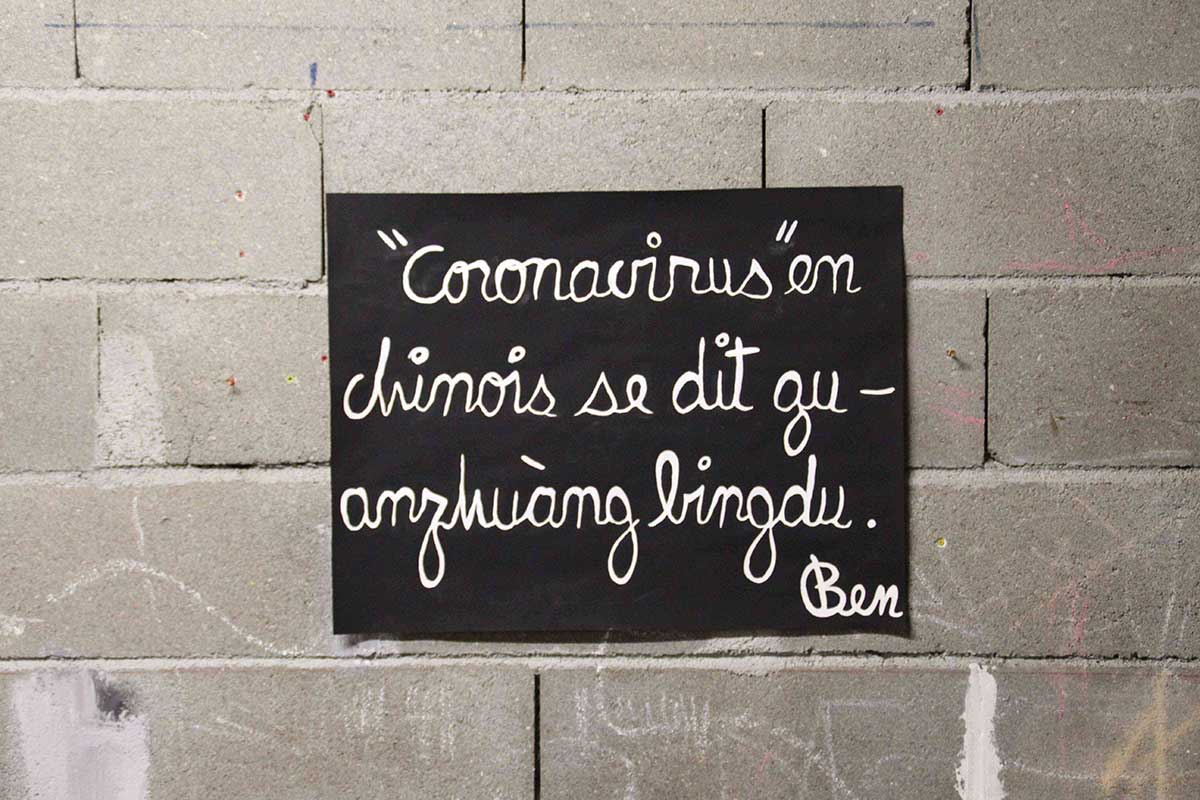 "Coronavirus" en
chinois se dit gu-
anzhuàng bingdu.
Ben